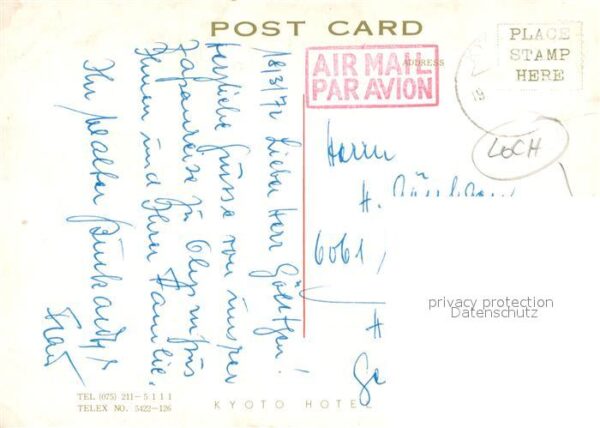 POST CARD
AIR MAIL
PAR AVION
ADDRESS
PLACE
STAMP
HERE
19
LOCH
18/3/72 Lieber Herr
Herzliche Grüsse von unsrer
Japanreise
Ihnen und Ihrer Familie.
Ihr Walter
Frau
Herrn
H.
6061,
H
Ge
privacy protection
Datenschutz
TEL (075) 211-5111
TELEX NO. 5422-126
KYOTO HOTEL